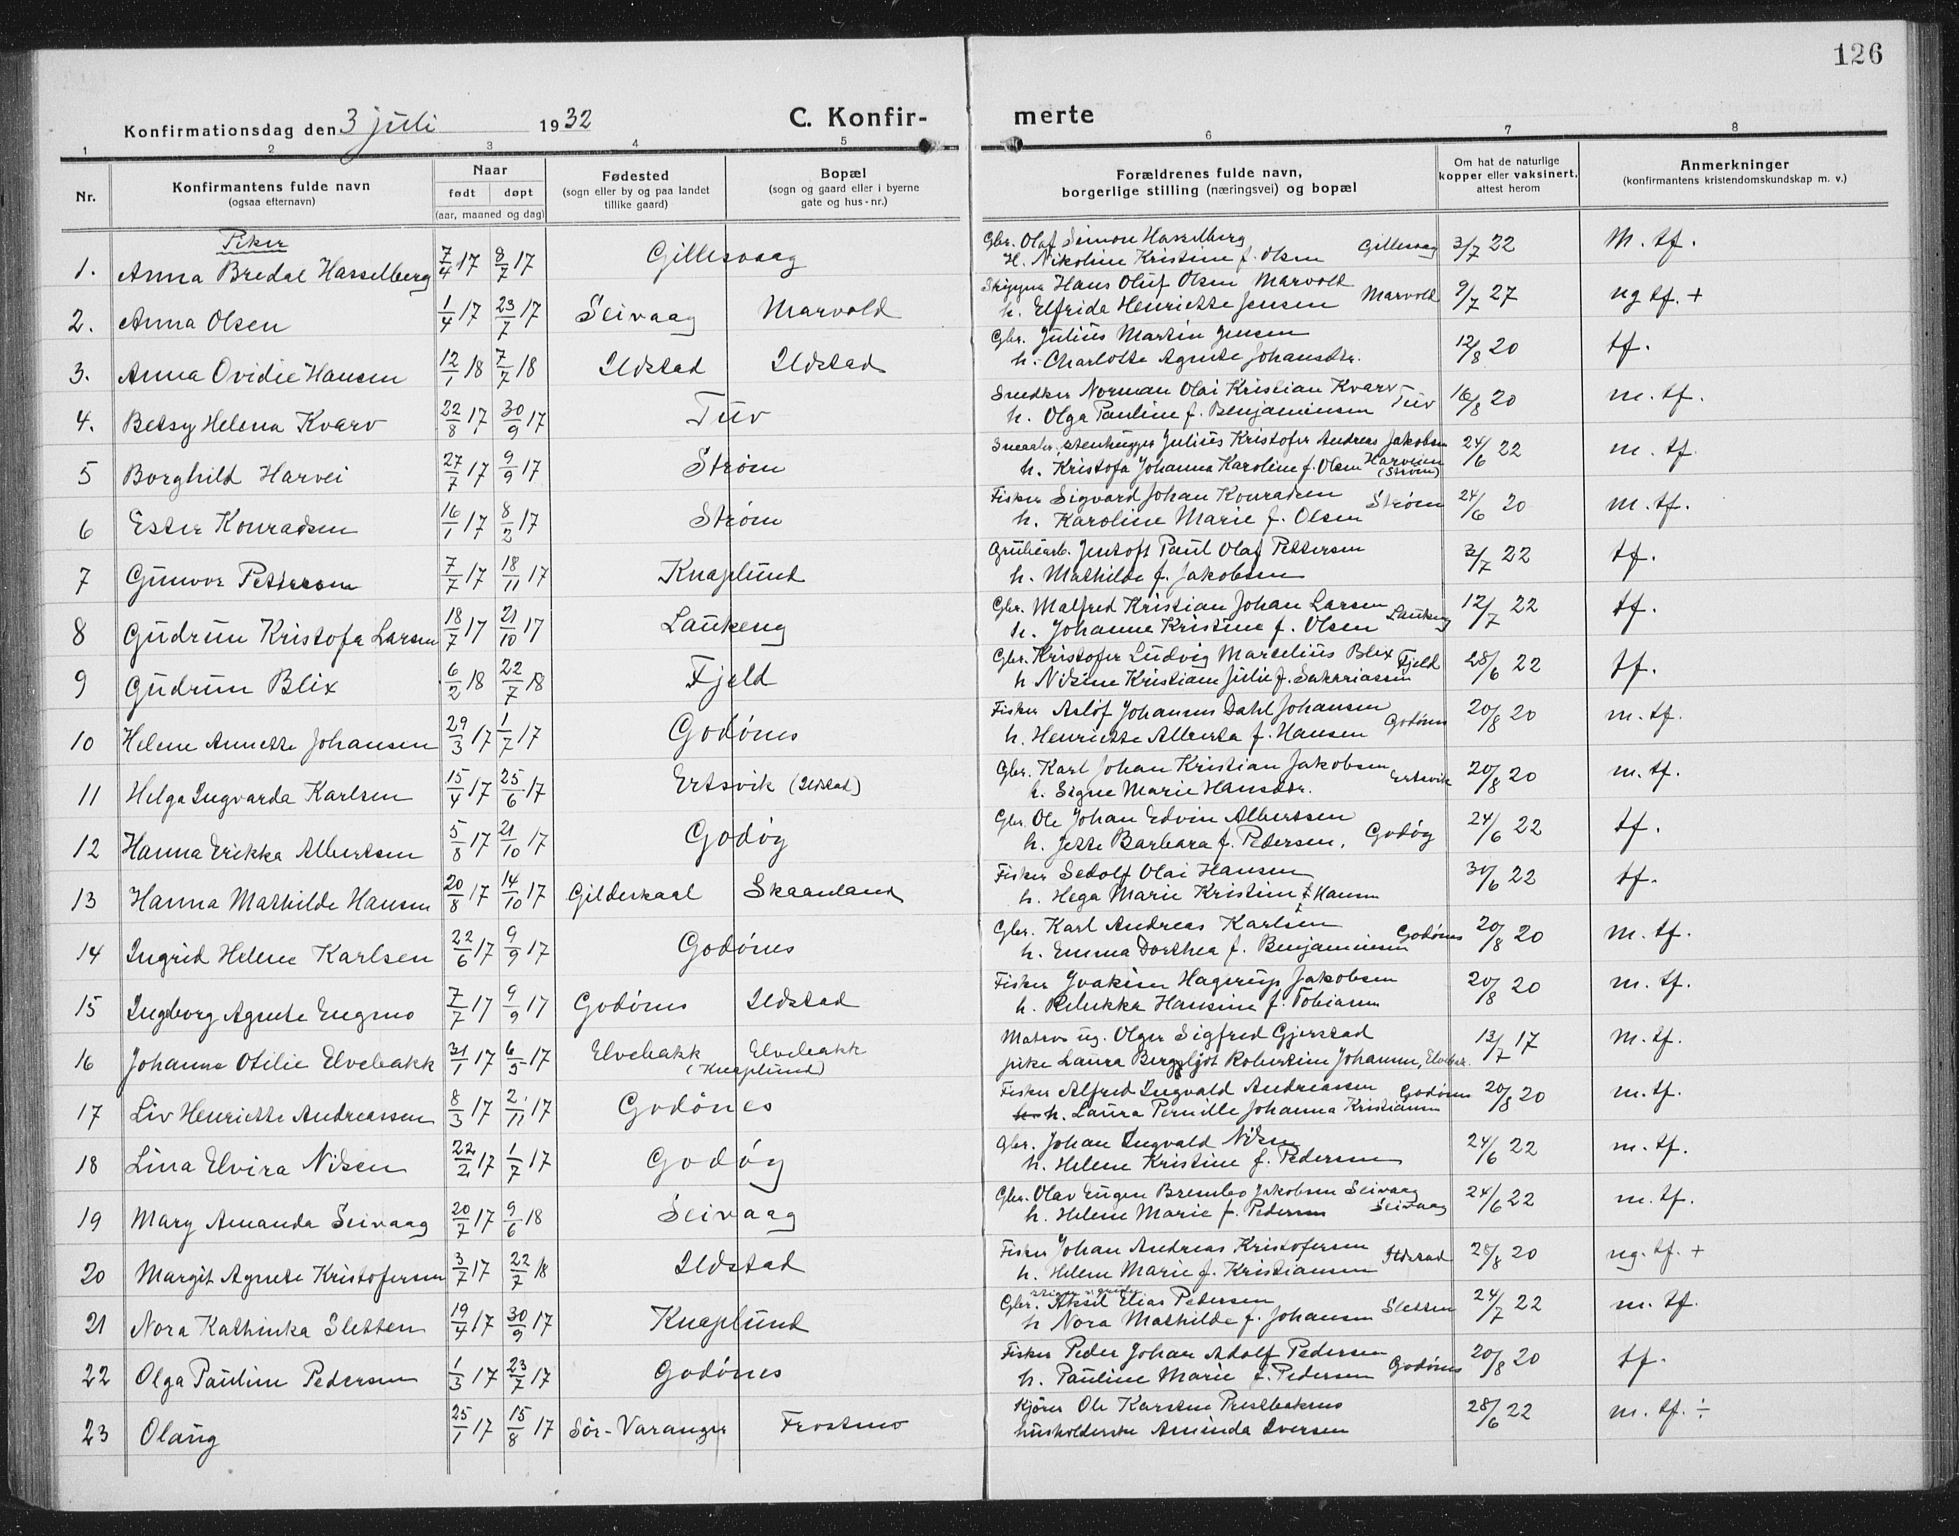 126
Konfirmationsdag den 3 juli 1932 C. Konfir- merte
1 2 3 4 5 6 7 8
Nr. Konfirmantens fulde navn (ogsaa efternavn) Naar født døpt (aar, maaned og dag) Fødested (sogn eller by og paa landet tillike gaard) Bopæl (sogn og gaard eller i byerne gate og hus-nr.) Forældrenes fulde navn, borgerlige stilling (næringsvei) og bopæl Om hat de naturlige kopper eller vaksinert, attest herom Anmerkninger (konfirmantens kristendomskundskap m. v.)
Piker
1. Anna Bredal Hasselberg 7/4 17 8/7 17 Gillesvaag Gbr. Olaf Simon Hasselberg
H. Nikoline Kristine f. Olsen Gillesvaag 3/7 22 M. tf.
2. Anna Olsen 1/4 17 23/7 17 Seivaag Marvold Hans Oluf Olsen Marvold
h. Elfrida Henriette Jensen Marvold 9/7 27 ng tf. +
3. Anna Ovidie Hansen 12/1 18 7/7 18 Ildstad Ildstad Gbr. Julius Martin Jensen
h. Charlotte Agnete Johansdtr. 12/8 20 tf.
4. Betsy Helena Kvarv 22/8 17 30/9 17 Tuv Snedker Norman Olai Kristian Kvarv
h. Olga Pauline f. Benjaminsen Tuv 16/8 20 m. tf.
5 Borghild Harvei 27/7 17 9/9 17 Strøm stenhugger Julius Kristofer Andreas Jakobsen
h. Kristofa Johanna Karoline f. Olsen Harveien (Strøm) 24/6 22 m. tf.
6 Ester Konradsen 16/1 17 8/2 17 Strøm Fisker Sigvard Johan Konradsen
h. Karoline Marie f. Olsen Strøm 24/6 20 m. tf.
7 Gunvor Pettersen 7/7 17 18/11 17 Knaplund Grubearb. Jentoft Paul Olaf Pettersen
h. Mathilde f. Jakobsen 3/7 22 tf.
8 Gudrun Kristofa Larsen 18/7 17 21/10 17 Laukeng Gbr. Malfred Kristian Johan Larsen
h. Johanna Kristine f. Olsen Laukeng 12/7 22 tf.
9 Gudrun Blix 6/2 18 22/7 18 Fjeld Gbr. Kristofer Ludvig Marselius Blix Fjeld
h Nilsine Kristiane Julie f. Sakariassen 28/6 22 tf.
10 Helene Annette Johansen 29/3 17 1/7 17 Godønes Fisker Aslof Johannes Dahl Johansen
h. Henriette Alberta f. Hansen Godønes 20/8 20 m. tf.
11 Helga Ingvarda Karlsen 15/4 17 25/6 17 Ertsvik (Ildstad) Gbr. Karl Johan Kristian Jakobsen
h. Signe Marie Hansdtr. Ertsvik 20/8 20 m. tf.
12 Hanna Erikka Albertsen 5/8 17 21/10 17 Godøy Gbr. Ole Johan Edvin Albertsen
h. Jette Barbara f. Pedersen, Godøy 24/6 22 tf.
13 Hanna Mathilde Hansen 20/8 17 14/10 17 Gildeskaal Skaanland Fisker Sedolf Olai Hansen
h. Hega Marie Kristine f. Hansen 30/6 22 tf.
14 Ingrid Helene Karlsen 22/6 17 9/9 17 Godønes Gbr. Karl Andreas Karlsen
h. Emma Dorthea f. Benjaminsen Godønes 20/8 20 m. tf.
15 Ingeborg Agnete Engmo 7/7 17 9/9 17 Godønes Ildstad Fisker Joakim Hagerup Jakobsen
h. Rebekka Hansine f. Tobiasen 20/8 20 m. tf.
16 Johanne Otilie Elvebakk 31/1 17 6/5 17 Elvebakk Elvebakk (Knaplund) Matros ug. Olger Sigfred Gjerstad
pike Laura Bergljot Robertine Johansen, 13/7 17 M. tf.
17 Liv Henriette Andreassen 8/3 17 2/11 17 Godönes Fisker Alfred Ingvald Andreassen Godønes
h. Laura Pernille Johanna Kristiansen 20/8 20 m. tf.
18 Lina Elvira Nilsen 22/2 17 1/7 17 Godøy Gbr. Johan Ingvald Nilsen
h. Helene Kristine f. Pedersen 24/6 22 m. tf.
19 Mary Amanda Seivaag 20/7 17 9/6 18 Seivaag Gbr. Olav Eugen Brembo Jakobsen Seivaag
h. Helene Marie f. Pedersen Seivaag 24/6 22 m. tf.
20 Margit Agnete Kristofersen 3/7 17 22/7 18 Ildstad Fisker Johan Andreas Kristofersen
h. Helene Marie f. Kristiansen Ildstad 28/8 20 ng. tf. +
21 Nora Kathinka Sletten 19/4 17 30/9 17 Knaplund Gbr. Aksil Elias Pedersen
h Nora Mathilde f. Johansen Sletten 24/7 22 m. tf.
22 Olga Pauline Pedersen 1/3 17 23/7 17 Godønes Fisker Peder Johan Adolf Pedersen
h. Pauline Marie f. Pedersen Godønes 20/8 20 tf.
23 Olaug 25/1 17 15/8 17 Sör-Varanger Frostmo Kjører Ole Karsten Prestbakmo
husholderske Aminda Iversen 28/6 22 m. tf. ÷